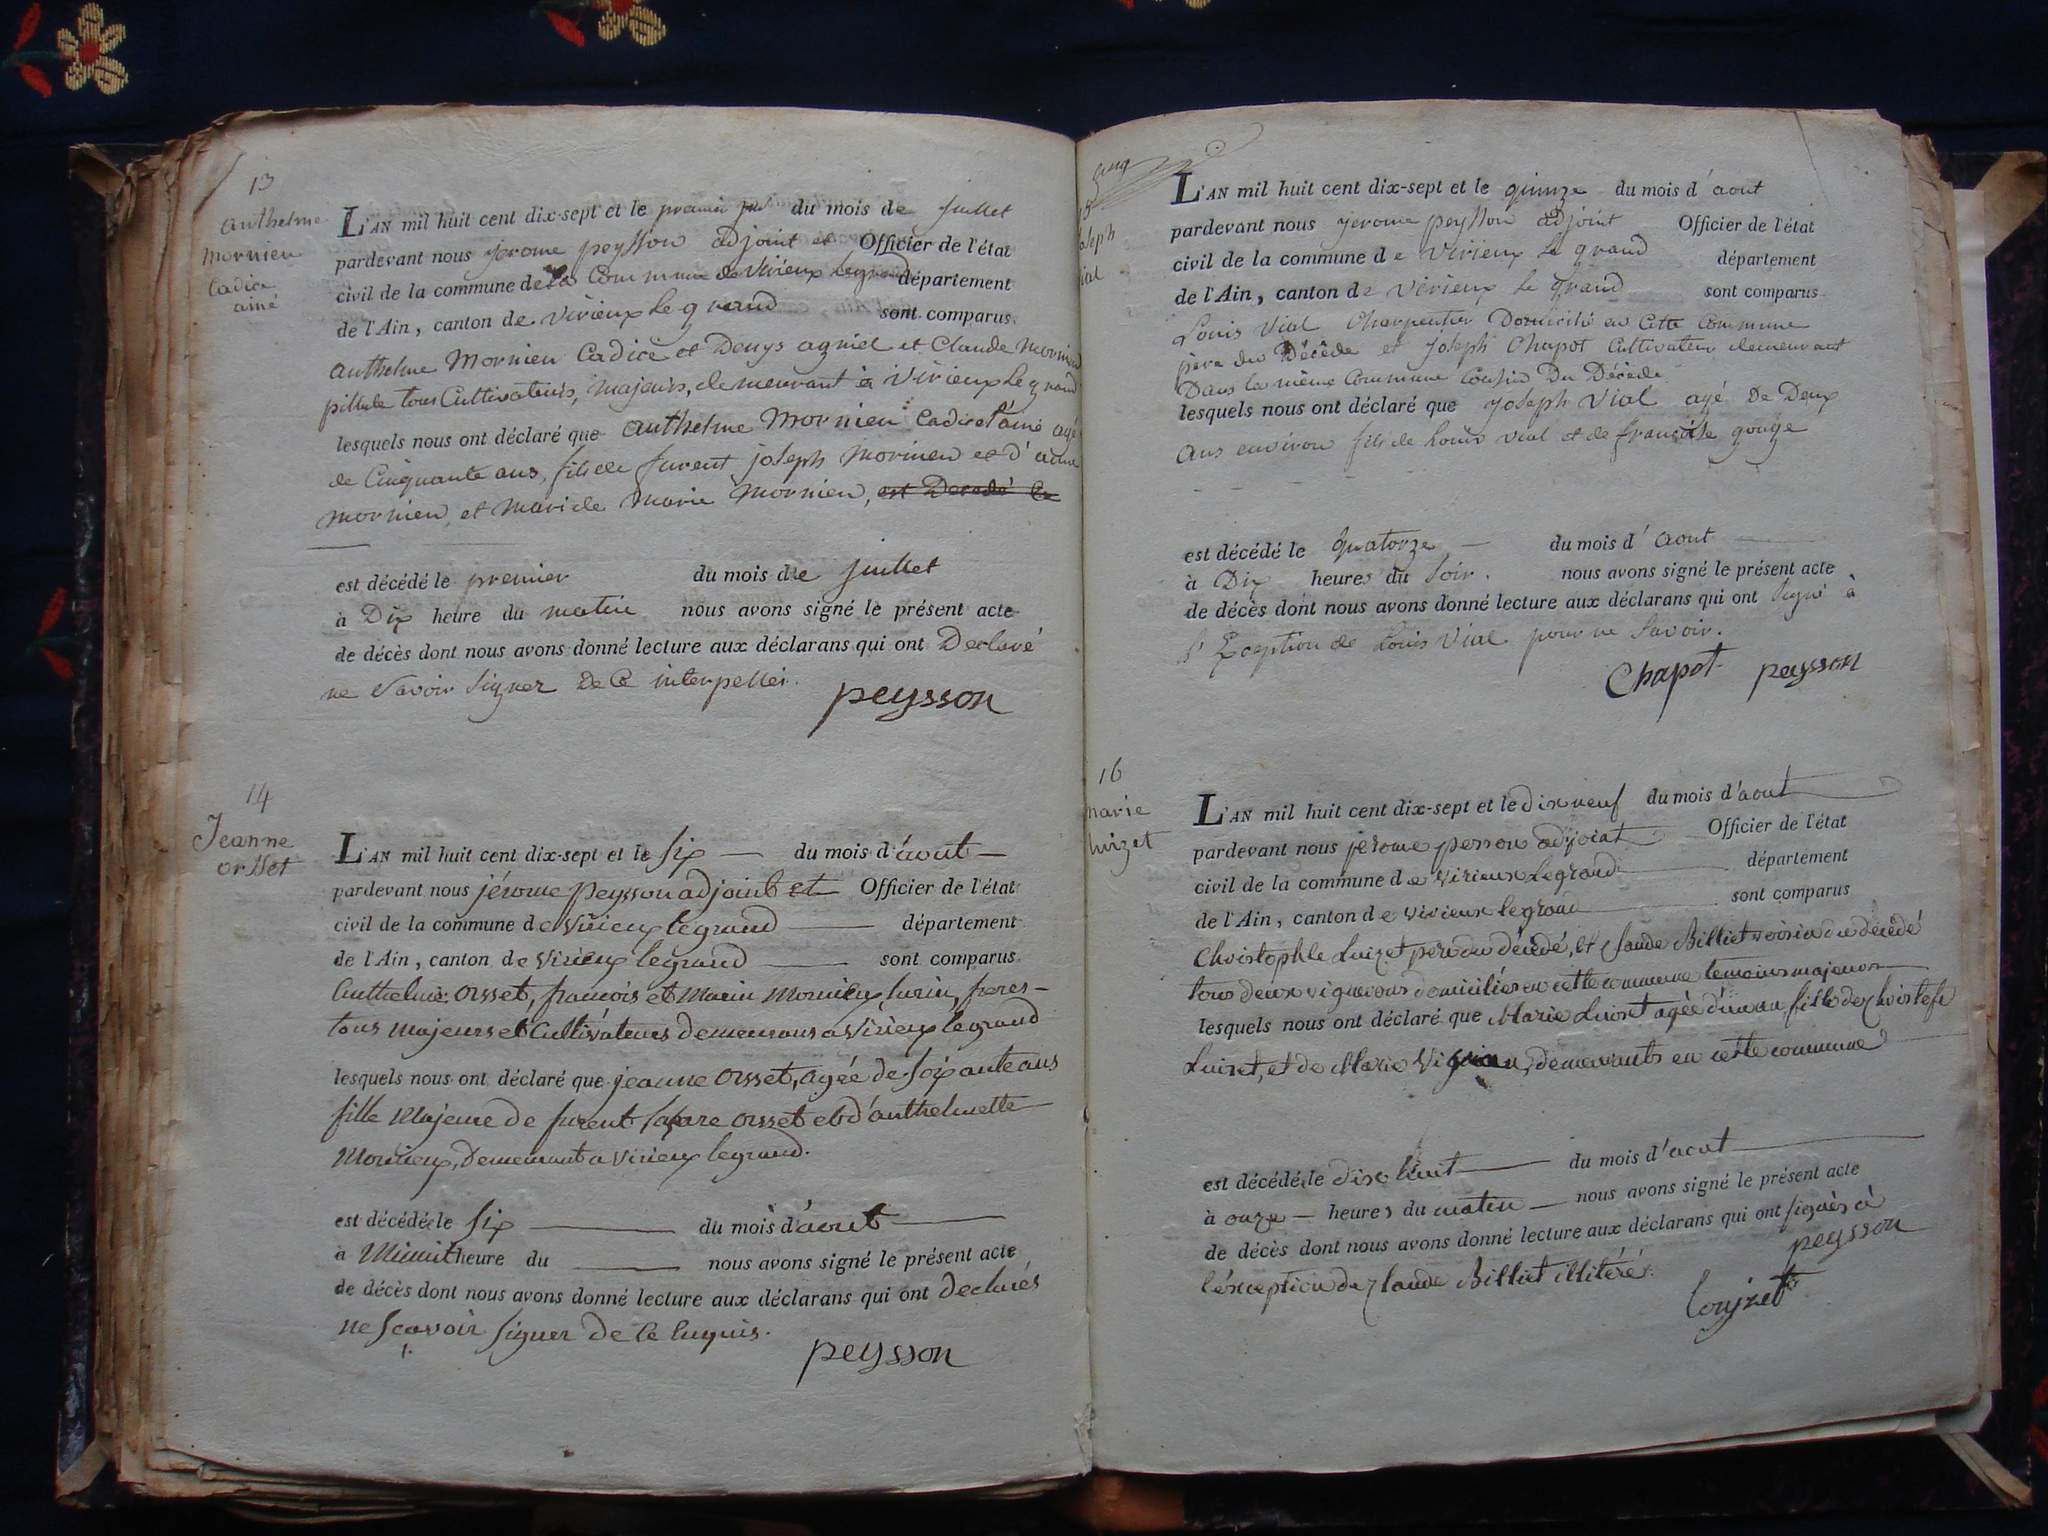 13
anthelme
mornieu
Cadice
ainé
L'AN mil huit cent dix-sept et le premier du mois de Juillet
pardevant nous jerome peysson adjoint et Officier de l'état
civil de la commune de la Commune de Virieux Legrand département
de l'Ain, canton de Virieux Le grand sont comparus
anthelme Mornieu Cadice et Denys agniel et Claude Mornieu
tous Cultivateurs, majeurs, demeurant à Virieux Le grand
lesquels nous ont déclaré que anthelme Mornieu Cadice l'ainé agé
de Cinquante ans, fils de furent joseph Mornieu et d'
mornieu, et mari de Marie Mornieu, est Decedé Le
est décédé le premier du mois de Juillet
à Dix heure du matin nous avons signé le présent acte
de décès dont nous avons donné lecture aux déclarans qui ont Declaré
ne Savoir Signer De Ce interpellés.
peysson
14
Jeanne
orsset
L'AN mil huit cent dix-sept et le Six du mois d'aout
pardevant nous jérome peysson adjoint et Officier de l'état
civil de la commune de Virieux legrand département
de l'Ain, canton de Virieux legrand sont comparus
Anthelme Orsset, francois et Marin Mornieux lurin, freres
tous majeurs et Cultivateurs demeurans a Virieux legrand
lesquels nous ont déclaré que jeanne Orsset, agée de Soixante ans
fille Majeure de furent lazare Orsset et d'anthelmette
Mornieux, demeurant a Virieux legrand.
est décédée le Six du mois d'aout
à Minuit heure du nous avons signé le présent acte
de décès dont nous avons donné lecture aux déclarans qui ont declarés
ne Scavoir Signer de ce enquis.
peysson
15
Joseph
Vial
L'AN mil huit cent dix-sept et le quinze du mois d'aout
pardevant nous jerome peysson adjoint Officier de l'état
civil de la commune de Virieux Le grand département
de l'Ain, canton de Virieux Le grand sont comparus
Louis Vial Charpentier Domicilié en Cette Commune
père du Décédé et Joseph Chapot Cultivateur demeurant
Dans la même Commune Cousin Du Décédé
lesquels nous ont déclaré que joseph Vial agé De Deux
ans environ fils de Louis Vial et de françoise gouge
est décédé le Quatorze du mois d'aout
à Dix heures du Soir. nous avons signé le présent acte
de décès dont nous avons donné lecture aux déclarans qui ont Signé à
l'Exception de Louis Vial pour ne Savoir.
Chapot peysson
16
marie
luizet
L'AN mil huit cent dix-sept et le dix neuf du mois d'aout
pardevant nous jérome person adjoint Officier de l'état
civil de la commune de Virieux Legrand département
de l'Ain, canton de Virieux legrand sont comparus
Christophle Luizet pere du décédé, et Claude Billiet voisin du décédé
tous deux vignerons domiciliés en cette commune temoins majeurs
lesquels nous ont déclaré que Marie Luiset agée d'un an, fille de Christofle
Luiset, et de Marie demeurants en cette commune
est décédée le dix huit du mois d'aout
à onze heures du matin nous avons signé le présent acte
de décès dont nous avons donné lecture aux déclarans qui ont signés à
l'éxception de Claude Billiet illitéré.
peysson
Loujzet